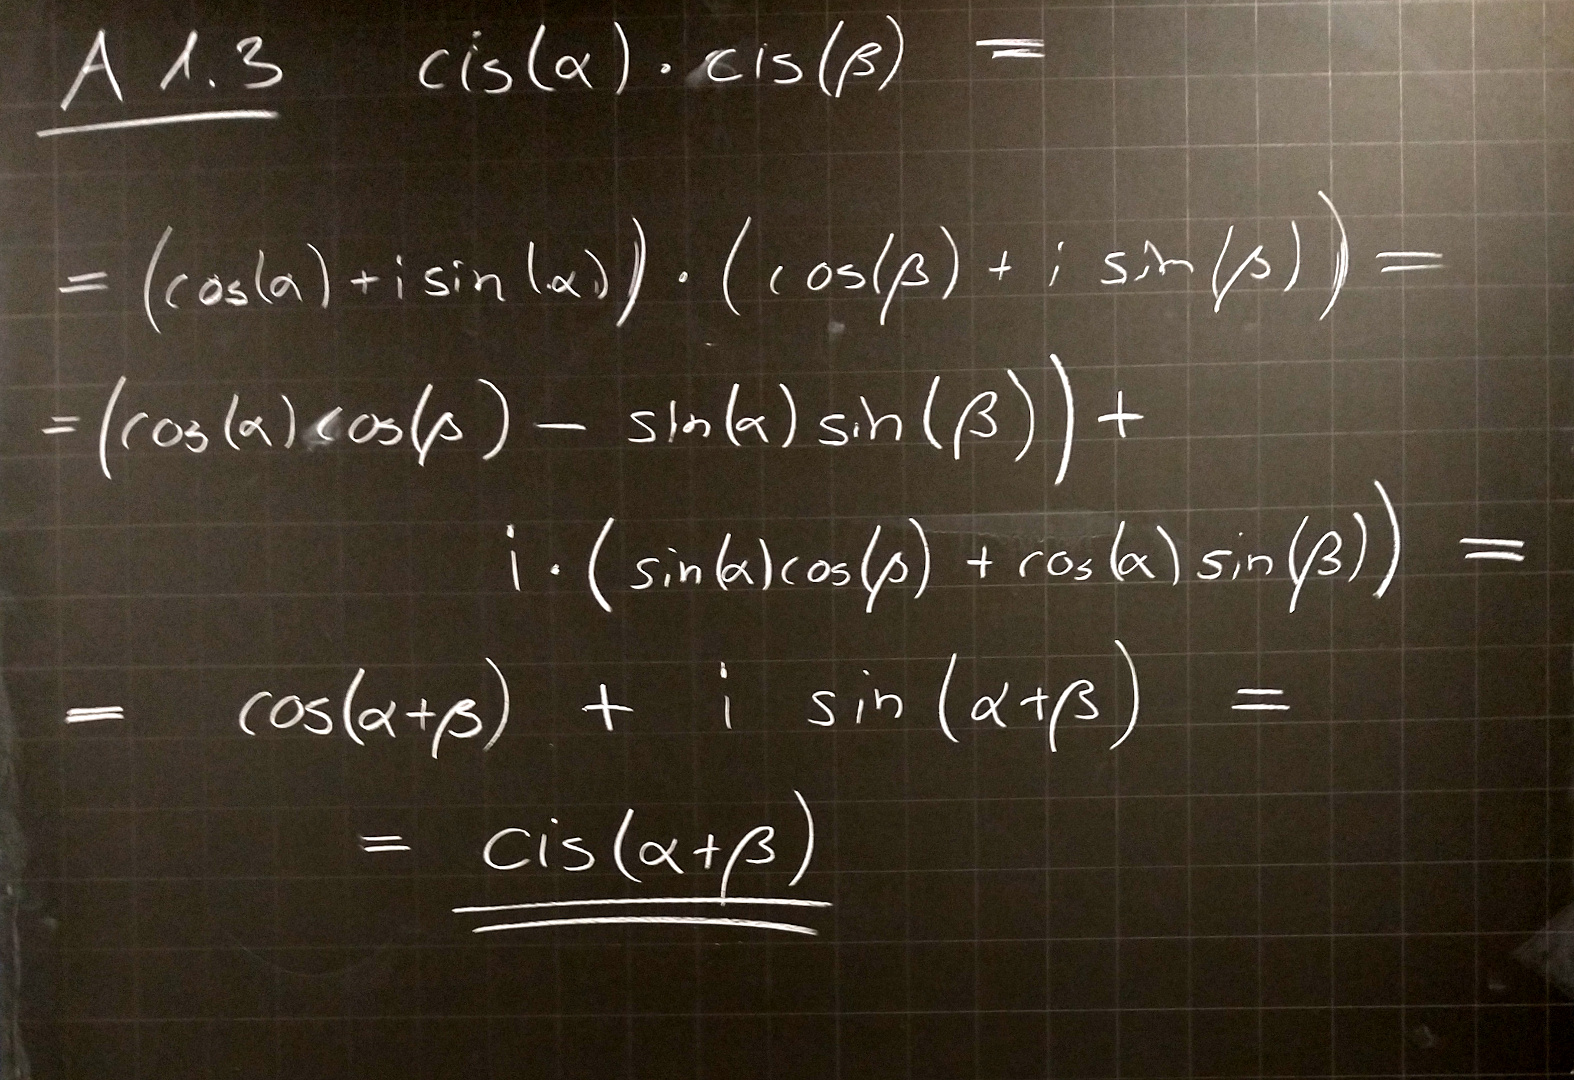 A 1.3 cis(α) · cis(β) =
= (cos(α) + i sin(α)) · (cos(β) + i sin(β)) =
= (cos(α) cos(β) − sin(α) sin(β)) +
i · (sin(α) cos(β) + cos(α) sin(β)) =
= cos(α+β) + i sin(α+β) =
= cis(α+β)